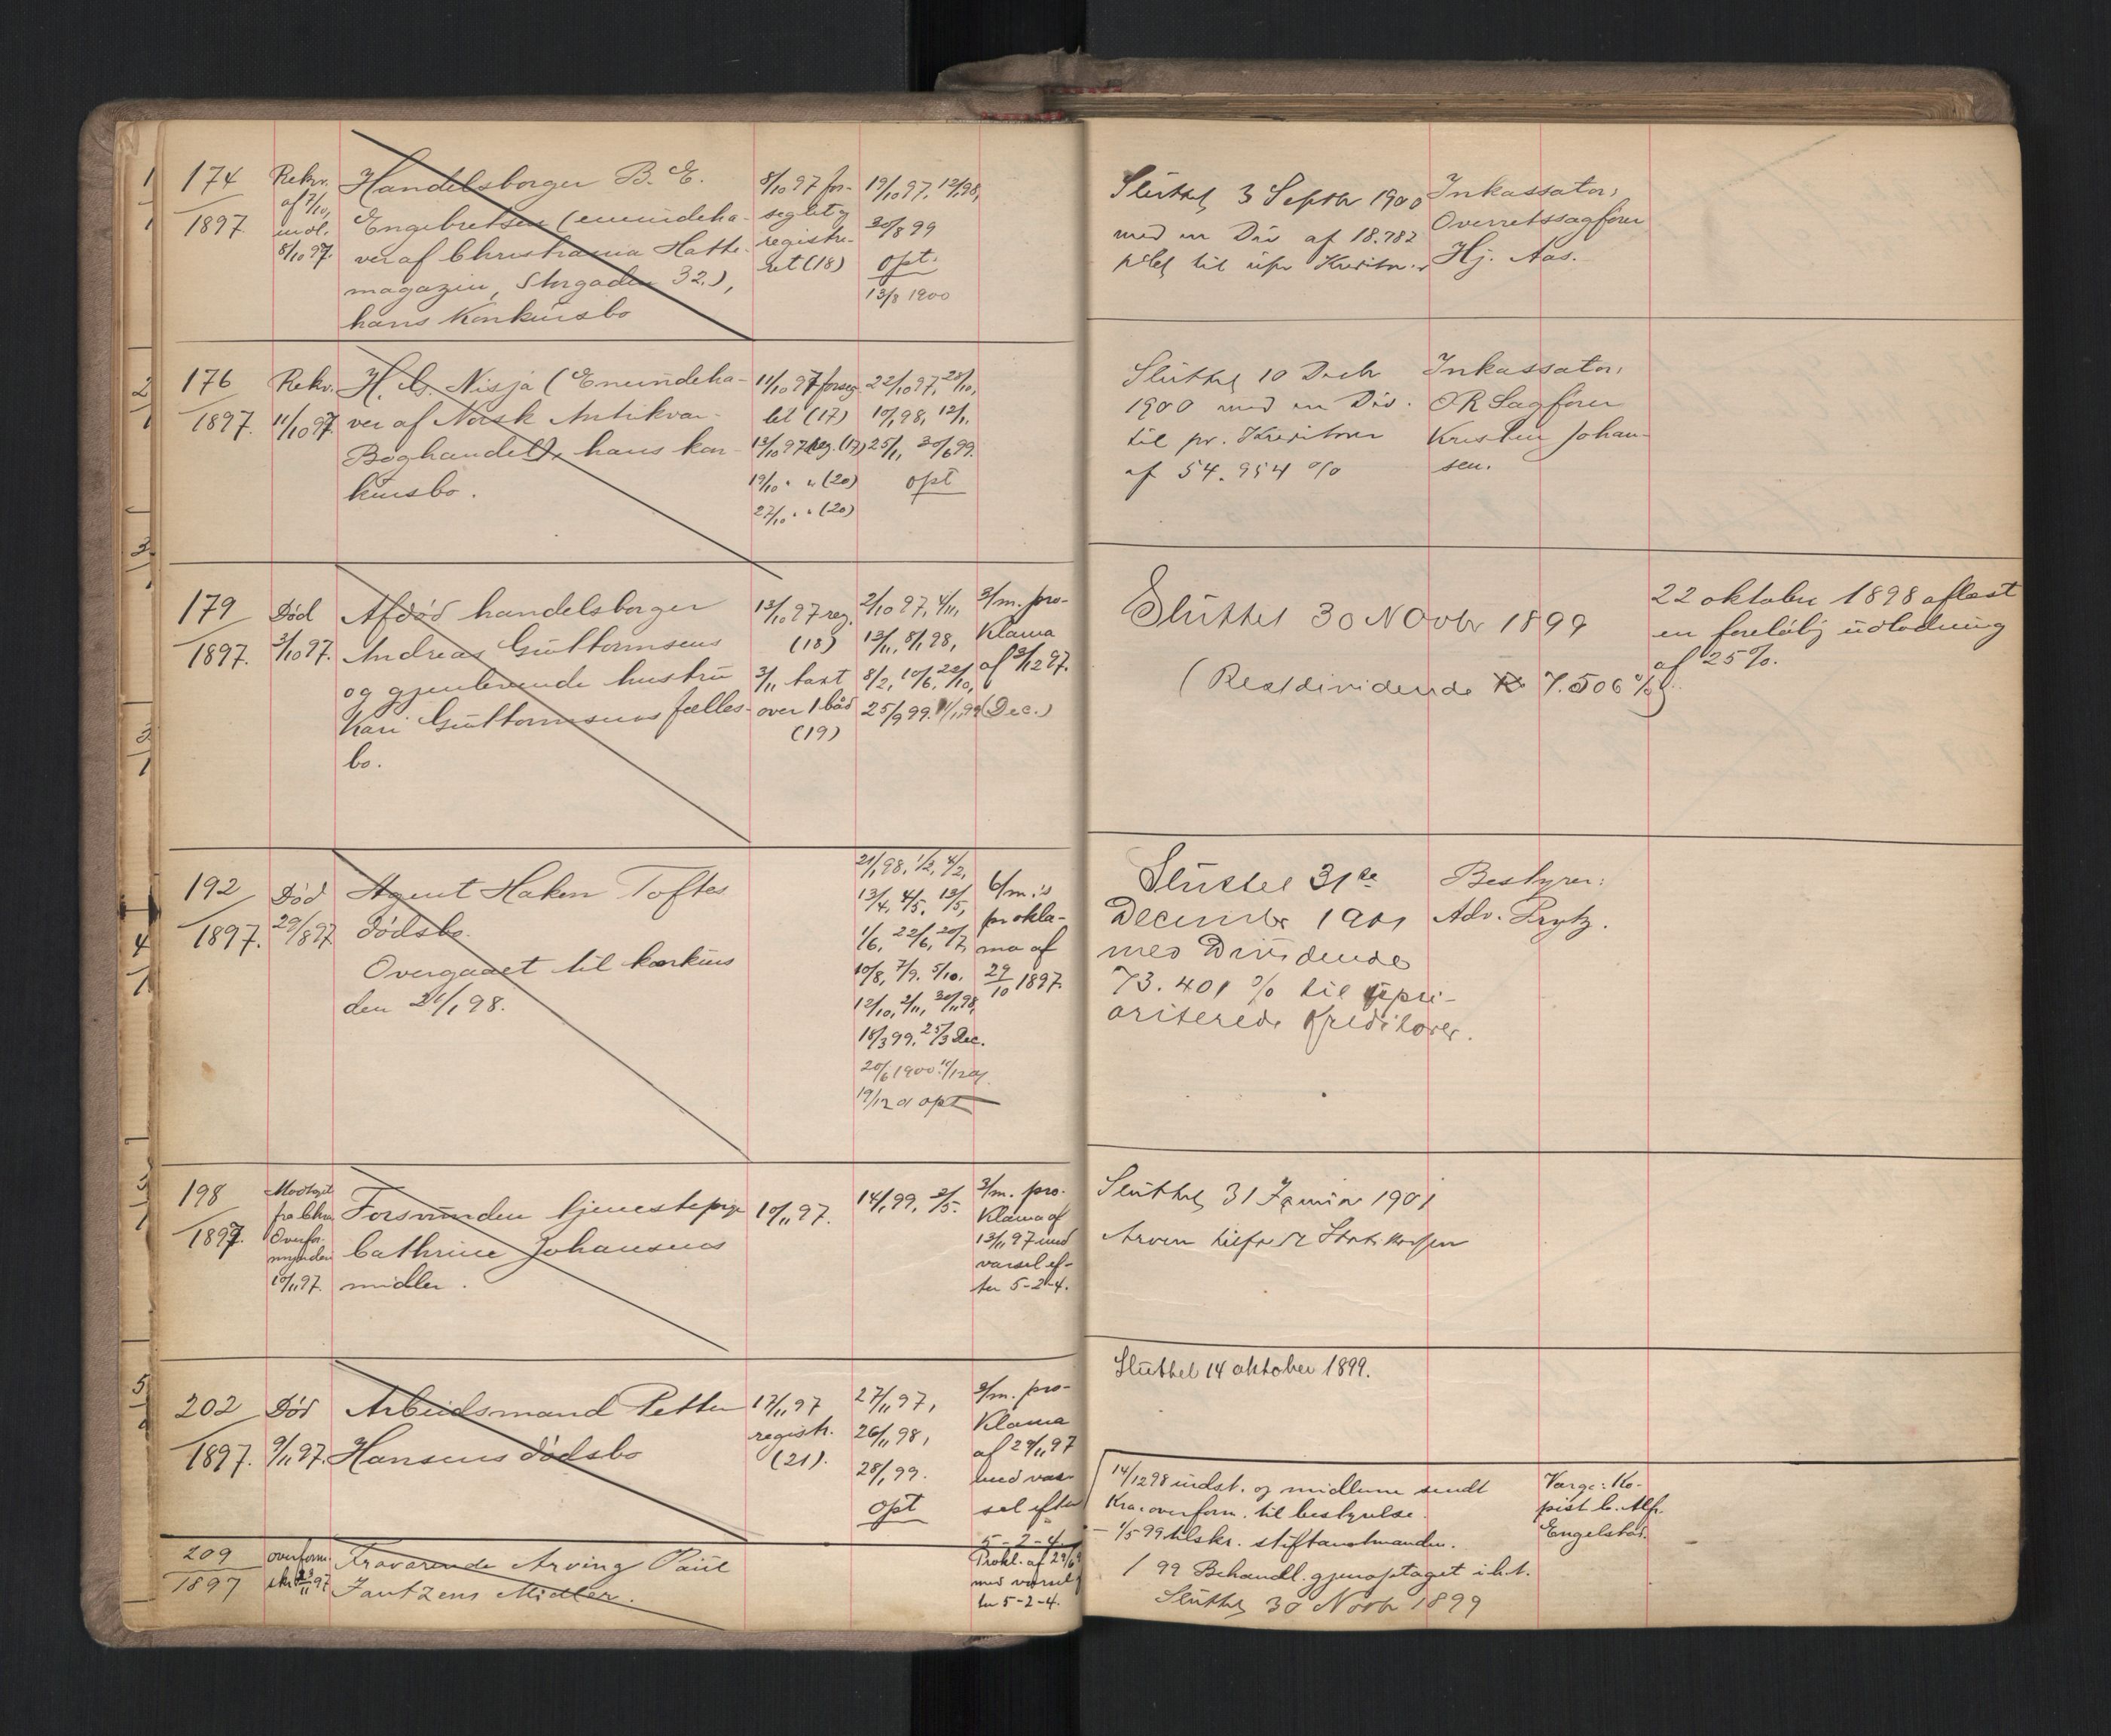 174
1897
Rekv.
af 7/10,
indl.
8/10 97.
Handelsborger B. E.
Engebretsen (eneindeha-
ver af Christiania Hatte-
magazin, Storgaden 32.),
hans Konkursbo
8/10 97 for-
seglet og
registre-
ret (18)
19/10 97, 12/1 98,
30/8 99
opt.
13/8 1900
Sluttet 3 Septbr 1900
med en Div af 18.782
pCt til upr Kreditorer
Inkassator:
Overretssagfører
Hj. Aas.
176
1897.
Rekv.
11/10 97.
H. G. Nisja (Eneindeha-
ver af Norsk Antikvar-
Boghandel), hans kon-
kursbo.
11/10 97 forseg-
let (17)
13/10 97 reg. (17)
19/10 " " (20)
27/10 " " (20)
22/10 97, 28/10,
10/1 98, 12/1,
25/1, 30/6 99.
opt
Sluttet 10 Decbr
1900 med en Div.
til pr. Kreditorer
af 54.954 %
Inkassator:
OR Sagfører
Kristen Johan-
sen.
179
1897.
Død
2/10 97.
Afdød handelsborger
Andreas Guttormsens
og gjenlevende hustru
Kari Guttormsens fælles-
bo.
13/10 97 reg.
(18)
3/11 taxt
over 1 båd
(19)
2/10 97, 4/11,
13/11, 8/1 98,
8/2, 10/6, 22/10,
25/9 99. 11/11 99 (Dec.)
3/m. pro-
klama
af 3/12 97.
Sluttet 30 Novbr 1899
(Restdividende 7.506 %)
22 oktober 1898 aflast
en foreløbig udlodning
af 25 %.
192
1897.
Død
29/8 97
Agent Haken Toftes
dødsbo.
Overgaaet til konkurs
den 21/1 98.
21/1 98, 1/2, 4/2,
13/4, 4/5, 13/5,
1/6, 22/6, 20/7,
10/8, 7/9, 5/10.
12/10, 2/11, 30/11 98,
18/3 99, 25/3 Dec.
20/6 1900. 11/12 01.
19/12 01 opt
6/m.'s
prokla-
ma af
29/10 1897.
Sluttet 31te
December 1901
med Dividende
73.401 % til upri-
oriterede Kreditorer.
Bestyrer:
Adv. Prytz.
198
1897.
Modtaget
fra Chra
Overfor-
mynderi
10/11 97.
Forsvunden tjenestepige
Cathrine Johansens
midler.
10/11 97.
14/1 99, 2/5.
3/m. pro-
klama af
13/11 97 med
varsel ef-
ter 5-2-4.
Sluttet 31 Januar 1901
Arven tilfaldt Statskassen
202
1897.
Død
9/11 97.
Arbeidsmand Petter
Hansens dødsbo
17/11 97
registr.
(21).
27/11 97,
26/11 98,
28/1 99.
opt
3/m. pro-
klama
af 29/11 97
med var-
sel efter
5-2-4.
Sluttet 14 oktober 1899.
209
1897
overform.
skr 23/11 97
Fraværende Arving Paul
Jantzens Midler.
Prokl. af 29/6
med varsel ef-
ter 5-2-4.
14/12 98 indst. og midlerne sendt
Kra. overform. til bestyrelse.
- 1/5 99 tilskr. stiftamtmanden.
/ 99 Behandl. gjenoptaget i h.t.
Sluttet 30 Novbr 1899
Værge: Ko-
pist C. Alfr.
Engelstad.